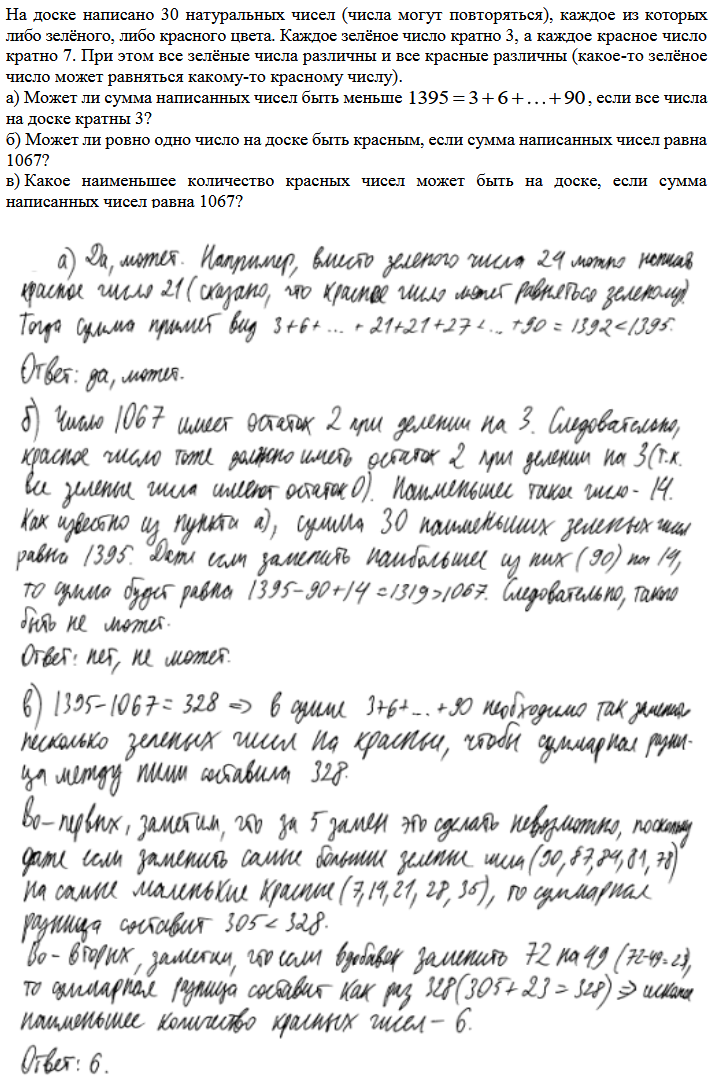 На доске написано 30 натуральных чисел (числа могут повторяться), каждое из которых
либо зелёного, либо красного цвета. Каждое зелёное число кратно 3, а каждое красное число
кратно 7. При этом все зелёные числа различны и все красные различны (какое-то зелёное
число может равняться какому-то красному числу).
а) Может ли сумма написанных чисел быть меньше 1395 = 3 + 6 + … + 90, если все числа
на доске кратны 3?
б) Может ли ровно одно число на доске быть красным, если сумма написанных чисел равна
1067?
в) Какое наименьшее количество красных чисел может быть на доске, если сумма
написанных чисел равна 1067?
а) Да, может. Например, вместо зеленого числа 24 можно написать
красное число 21 (сказано, что красное число может равняться зеленому).
Тогда сумма примет вид 3+6+ … + 21+21+27+ … +90 = 1392 < 1395.
Ответ: да, может.
б) Число 1067 имеет остаток 2 при делении на 3. Следовательно,
красное число тоже должно иметь остаток 2 при делении на 3 (т.к.
все зеленые числа имеют остаток 0). Наименьшее такое число - 14.
Как известно из пункта а), сумма 30 наименьших зеленых чисел
равна 1395. Даже если заменить наибольшее из них (90) на 14,
то сумма будет равна 1395-90+14 = 1319 > 1067. Следовательно, такого
быть не может.
Ответ: нет, не может.
в) 1395-1067 = 328 => в сумме 3+6+ … +90 необходимо так заменить
несколько зеленых чисел на красные, чтобы суммарная разни-
ца между ними составила 328.
Во-первых, заметим, что за 5 замен это сделать невозможно, поскольку
даже если заменить самые большие зеленые числа (90, 87, 84, 81, 78)
на самые маленькие красные (7, 14, 21, 28, 35), то суммарная
разница составит 305 < 328.
Во-вторых, заметим, что если вдобавок заменить 72 на 49 (72-49=23),
то суммарная разница составит как раз 328 (305+23 = 328) =>
наименьшее количество красных чисел - 6.
Ответ: 6.